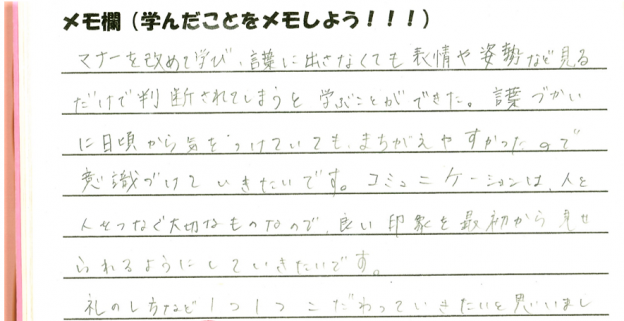 メモ欄（学んだことをメモしよう！！！）
マナーを改めて学び、言葉に出さなくても表情や姿勢など見る
だけで判断されてしまうと学ぶことができた。言葉づかい
に日頃から気をつけていても、まちがえやすかったので
意識づけていきたいです。コミュニケーションは、人と
人をつなぐ大切なものなので、良い印象を最初から見せ
られるようにしていきたいです。
礼のし方など1つ1つこだわっていきたいと思いまし